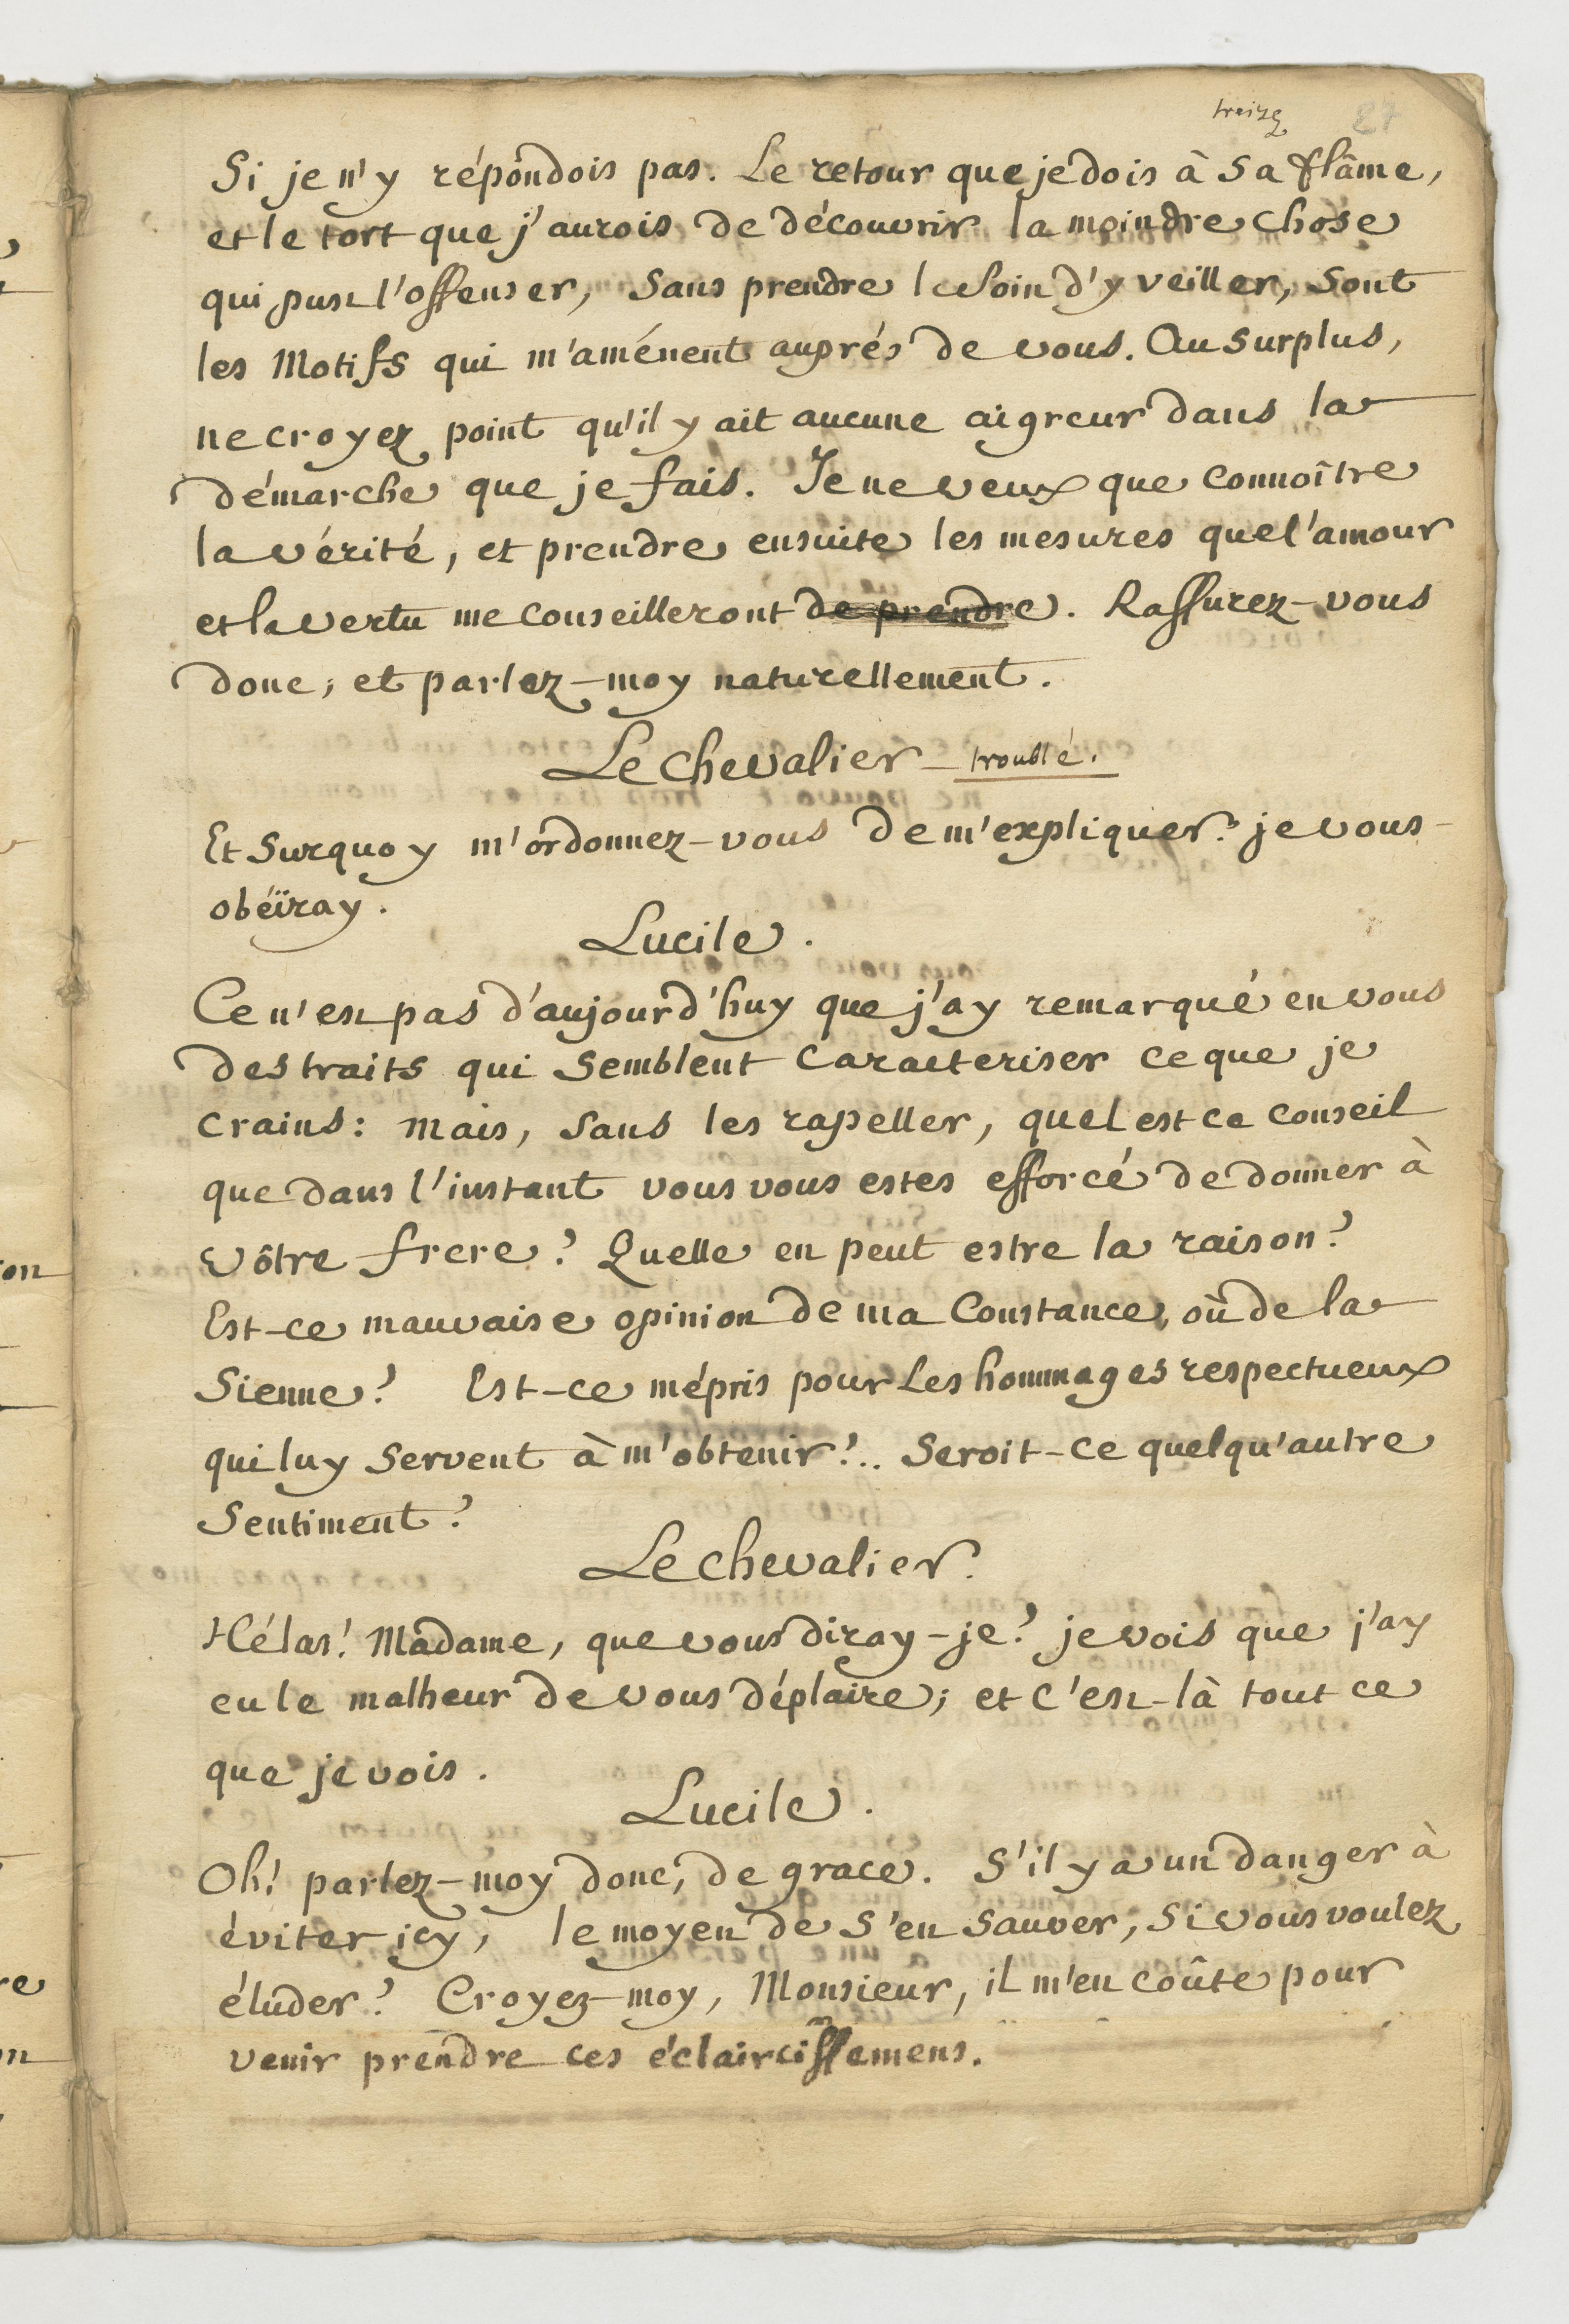 treize 27
Si je n'y répondois pas. Le retour que je dois à sa flâme,
et le tort que j'aurois de découvrir la moindre chose
qui pust l'offenser, sans prendre le soin d'y veiller, sont
les Motifs qui m'aménent auprés de vous. Au surplus,
ne croyez point qu'il y ait aucune aigreur dans la
démarche que je fais. Je ne veux que connoître
la vérité, et prendre ensuite les mesures que l'amour
et la vertu me conseilleront de prendre. Rassurez-vous
donc, et parlez-moy naturellement.
Le Chevalier troublé.
Et surquoy m'ordonnez-vous de m'expliquer? je vous
obéïray.
Lucile.
Ce n'est pas d'aujourd'huy que j'ay remarqué en vous
des traits qui semblent caracteriser ce que je
crains: mais, sans les rapeller, quel est ce conseil
que dans l'instant vous vous estes efforcé de donner à
vôtre frere? Quelle en peut estre la raison?
Est-ce mauvaise opinion de ma Constance, où de la
sienne? Est-ce mépris pour les hommages respectueux
qui luy servent à m'obtenir?.. Seroit-ce quelqu'autre
sentiment?
Le Chevalier.
Hélas! Madame, que vous diray-je? je vois que j'ay
eu le malheur de vous déplaire; et c'est-là tout ce
que je vois.
Lucile.
Oh! parlez-moy donc, de grace. S'il y a un danger à
éviter icy, le moyen de s'en sauver, si vous voulez
éluder? Croyez-moy, Monsieur, il m'en coûte pour
venir prendre ces éclaircissemens.